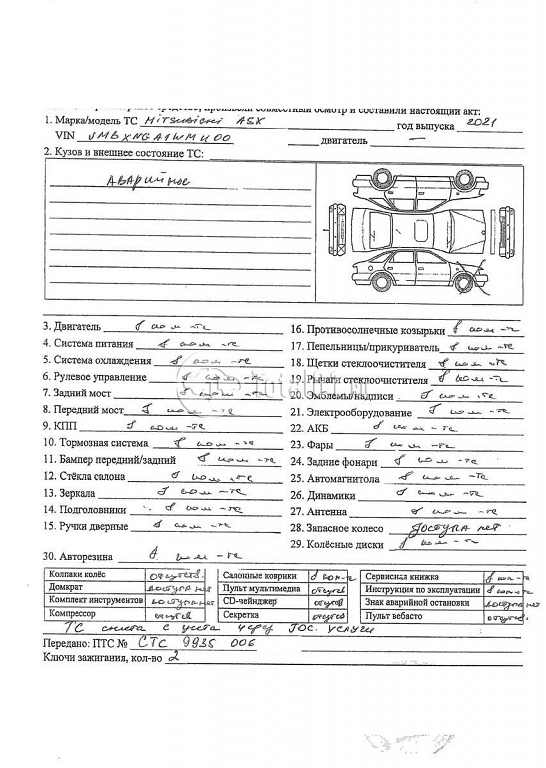 совместный осмотр и составили настоящий акт:
1. Марка/модель ТС MiTSUBiSHi ASX год выпуска 2021
VIN двигатель —
2. Кузов и внешнее состояние ТС:
Аварийное
3. Двигатель в ком-те
4. Система питания в ком-те
5. Система охлаждения в ком-те
6. Рулевое управление в ком-те
7. Задний мост в ком-те
8. Передний мост в ком-те
9. КПП в ком-те
10. Тормозная система в ком-те
11. Бампер передний/задний в ком-те
12. Стёкла салона в ком-те
13. Зеркала в ком-те
14. Подголовники в ком-те
15. Ручки дверные в ком-те
16. Противосолнечные козырьки в ком-те
17. Пепельницы/прикуриватель в ком-те
18. Щетки стеклоочистителя в ком-те
19. Рычаги стеклоочистителя в ком-те
20. Эмблемы/надписи в ком-те
21. Электрооборудование в ком-те
22. АКБ в ком-те
23. Фары в ком-те
24. Задние фонари в ком-те
25. Автомагнитола в ком-те
26. Динамики в ком-те
27. Антенна в ком-те
28. Запасное колесо Доступа нет
29. Колёсные диски в ком-те
30. Авторезина в ком-те
Колпаки колёс отсутств. Салонные коврики в ком-те Сервисная книжка в ком-те
Домкрат доступа нет Пульт мультимедиа отсутств Инструкция по эксплуатации в ком-те
Комплект инструментов доступа нет CD-чейнджер отсутств Знак аварийной остановки доступа нет
Компрессор отсутств Секретка отсутств Пульт вебасто отсутств.
ТС снята с учета через Гос. услуги
Передано: ПТС № СТС 9935 006
Ключи зажигания, кол-во 2